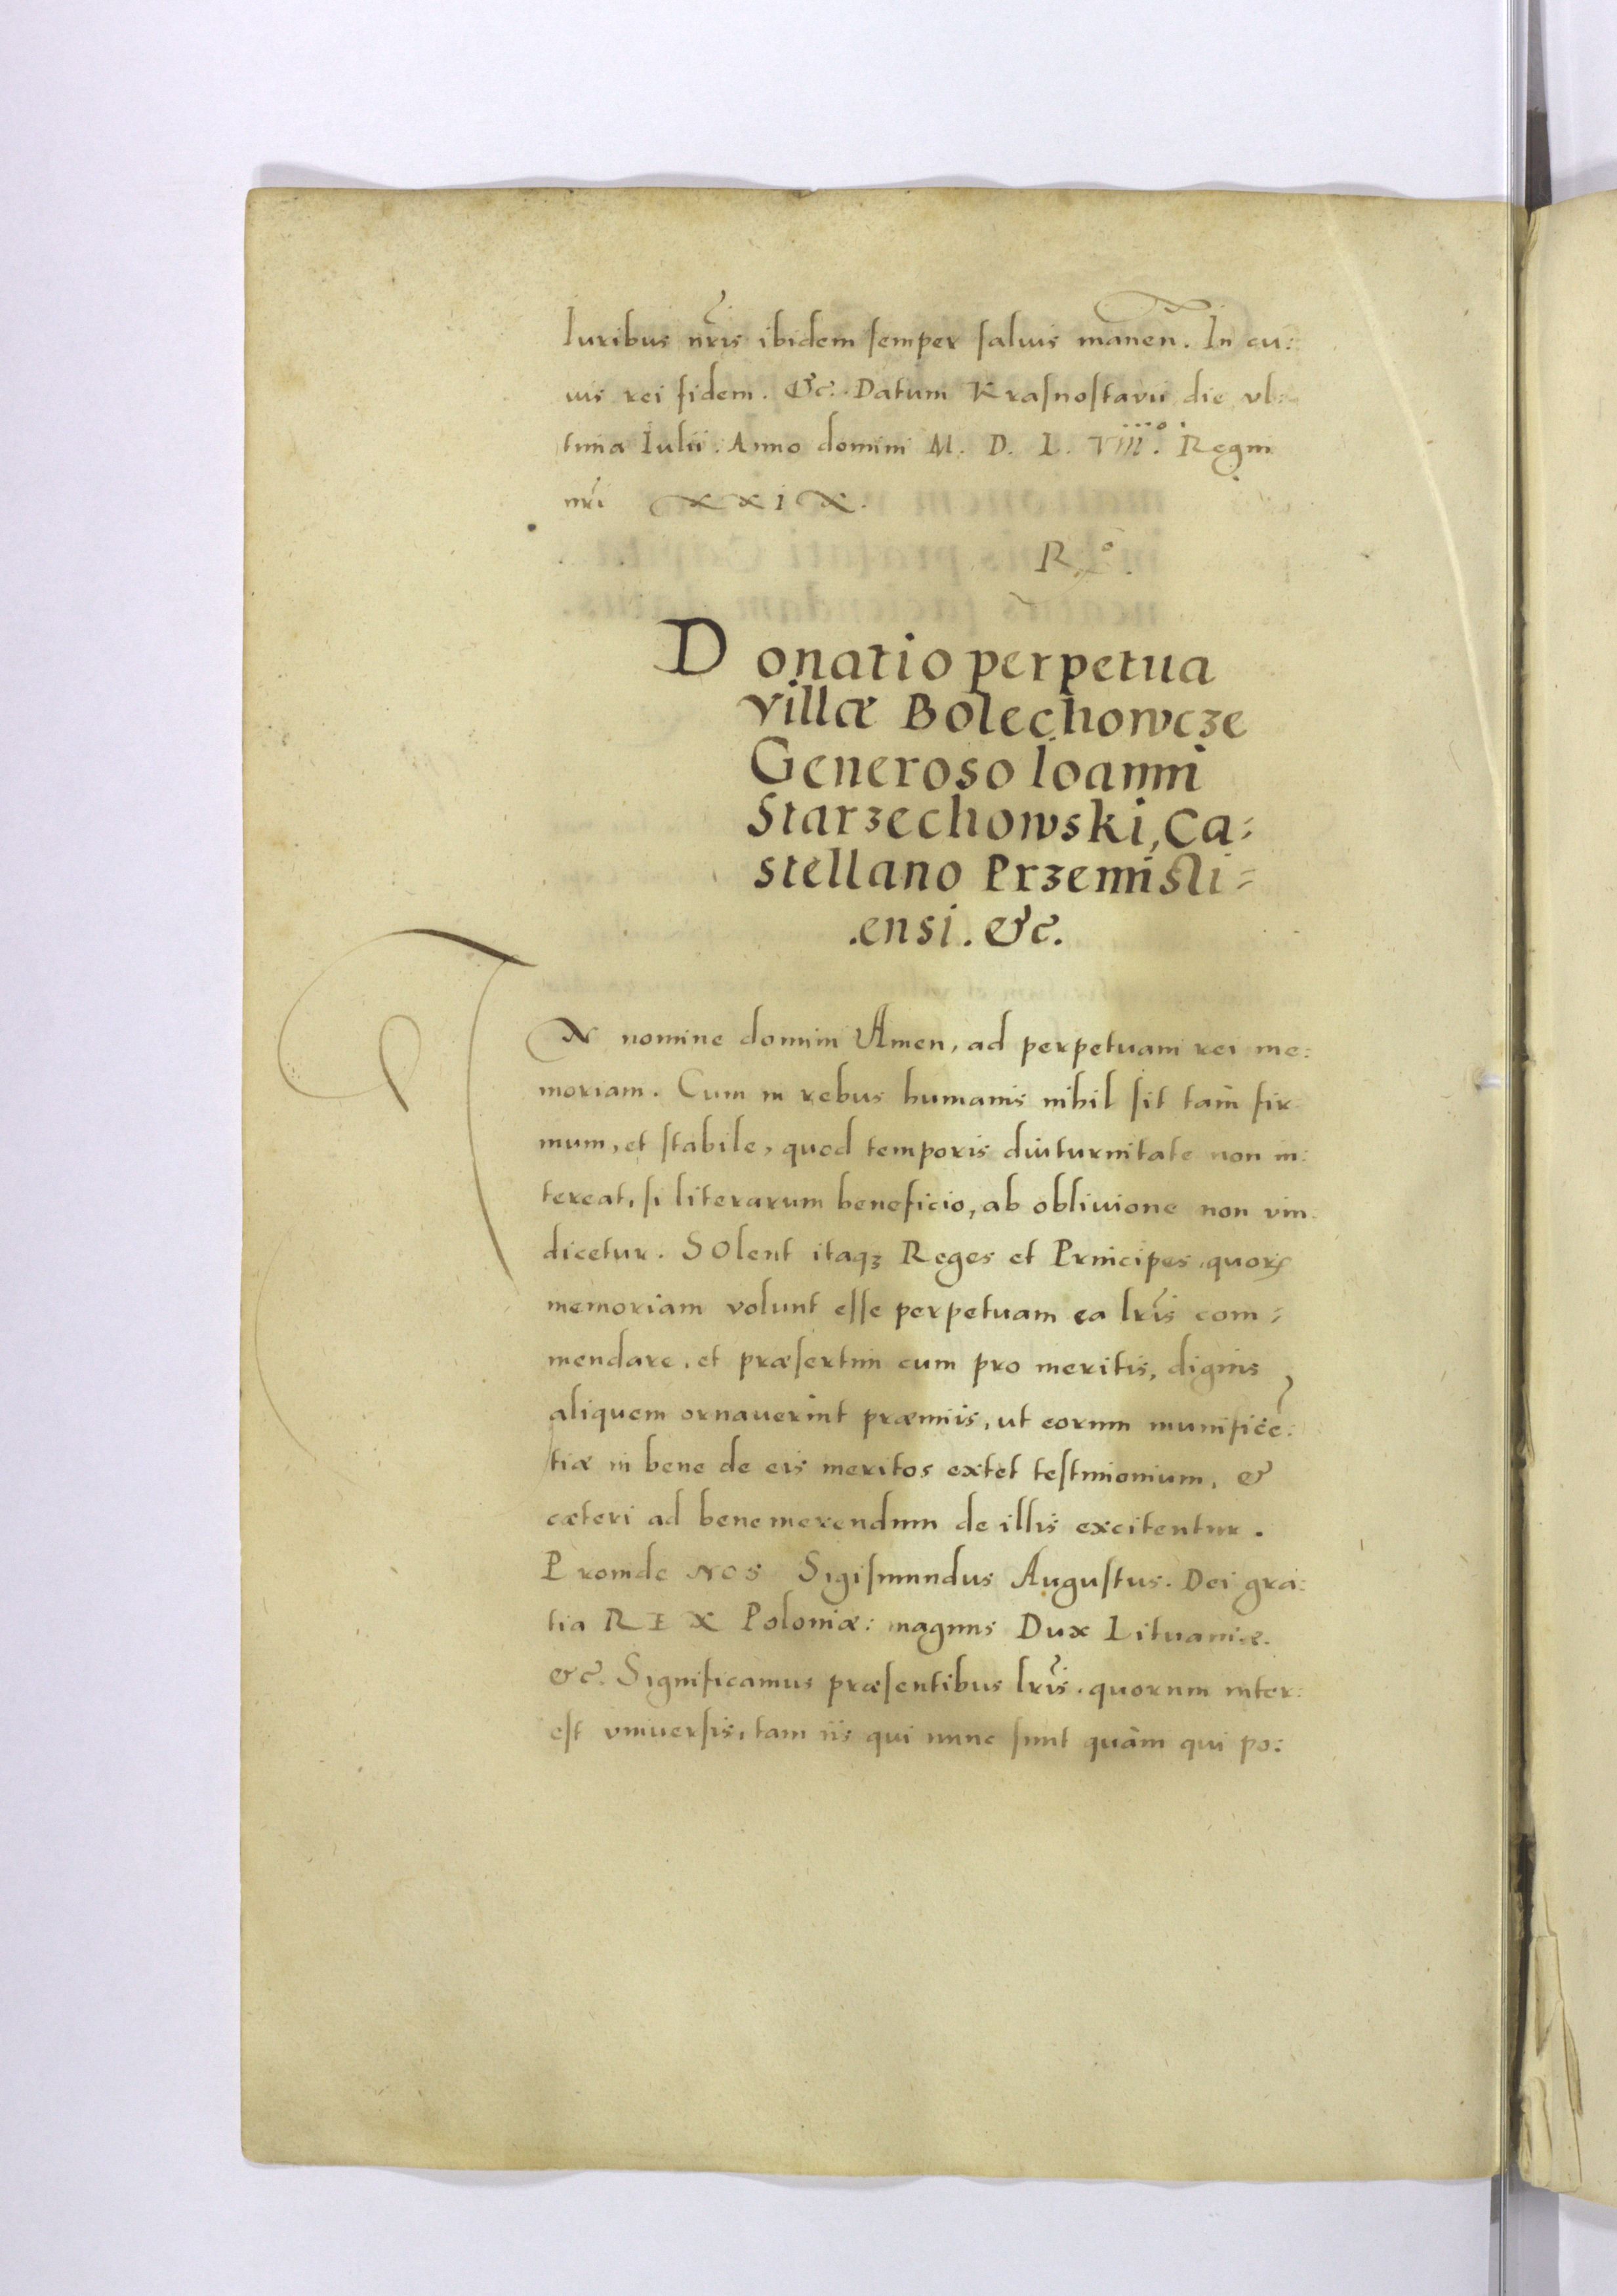 Iuribus nr̃is ibidem semper saluis manen̄. In cu:
ius rei fidem. &c. Datum Krasnostavii die vl:
tima Iulii. Anno domini M. D. L. VIII°. Regni
nr̃i XXIX.
D onatio perpetua
villæ Bolechowcze
Generoso Ioanni
Starzechowski, Ca=
stellano Przemisli=
.ensi. &c.
IN nomine domini Amen, ad perpetuam rei me:
moriam. Cum in rebus humanis nihil sit tam̀ fir
mum, et stabile, quod temporis diuturnitate non in:
tereat, si literarum beneficio, ab obliuione non vin.
dicetur. SOlent itaqꝫ Reges et Principes, quorꝝ
memoriam volunt esse perpetuam ea lr̃is com=
mendare, et præsertim cum pro meritis, dignis
aliquem ornauerint præmiis, ut eorum munificẽ:
tiæ in bene de eis meritos extet testimonium, &
cæteri ad bene merendum de illis excitentur.
Proinde NOS Sigismundus Augustus. Dei gra:
tia REX Poloniæ: magnus Dux Lituaniæ.
&c. Significamus præsentibus lr̃is. quorum inter:
est vniuersis, tam iis qui nunc sunt quàm qui po: